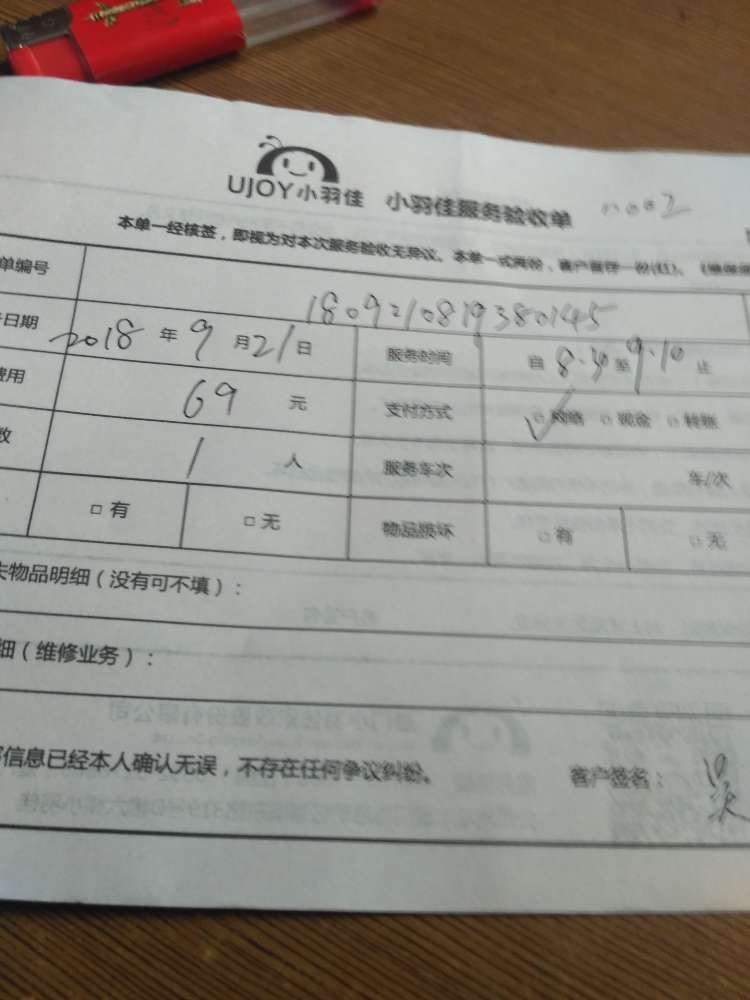 UJOY小羽佳 小羽佳服务验收单 n002
本单一经核签，即视为对本次服务验收无异议。本单一式两份，客户留存一份(红)、
单编号 1809210819380145
日期 2018 年 9 月 21 日 服务时间 自 8.30 至 9.10 止
费用 69 元 支付方式 ☑ 网络 □ 现金 □ 转账
数 1 人 服务车次 车/次
□ 有 □ 无 物品损坏 □ 有 □ 无
失物品明细（没有可不填）：
细（维修业务）：
信息已经本人确认无误，不存在任何争议纠纷。 客户签名：